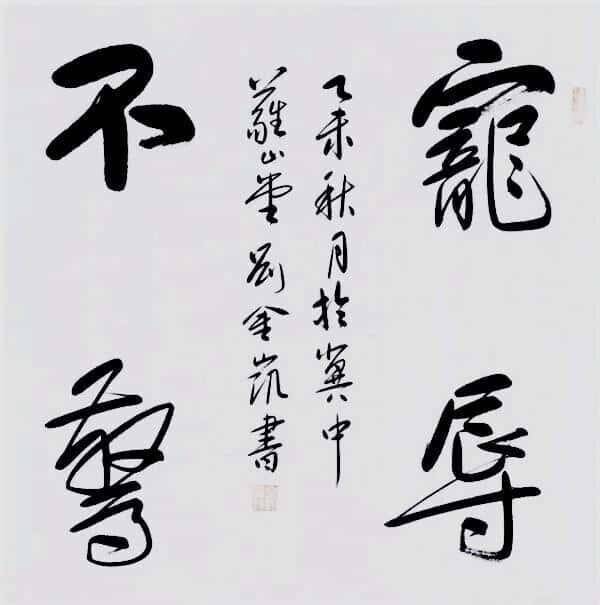 寵辱
乙未秋月於冀中
蘿山堂劉金凱書
不驚